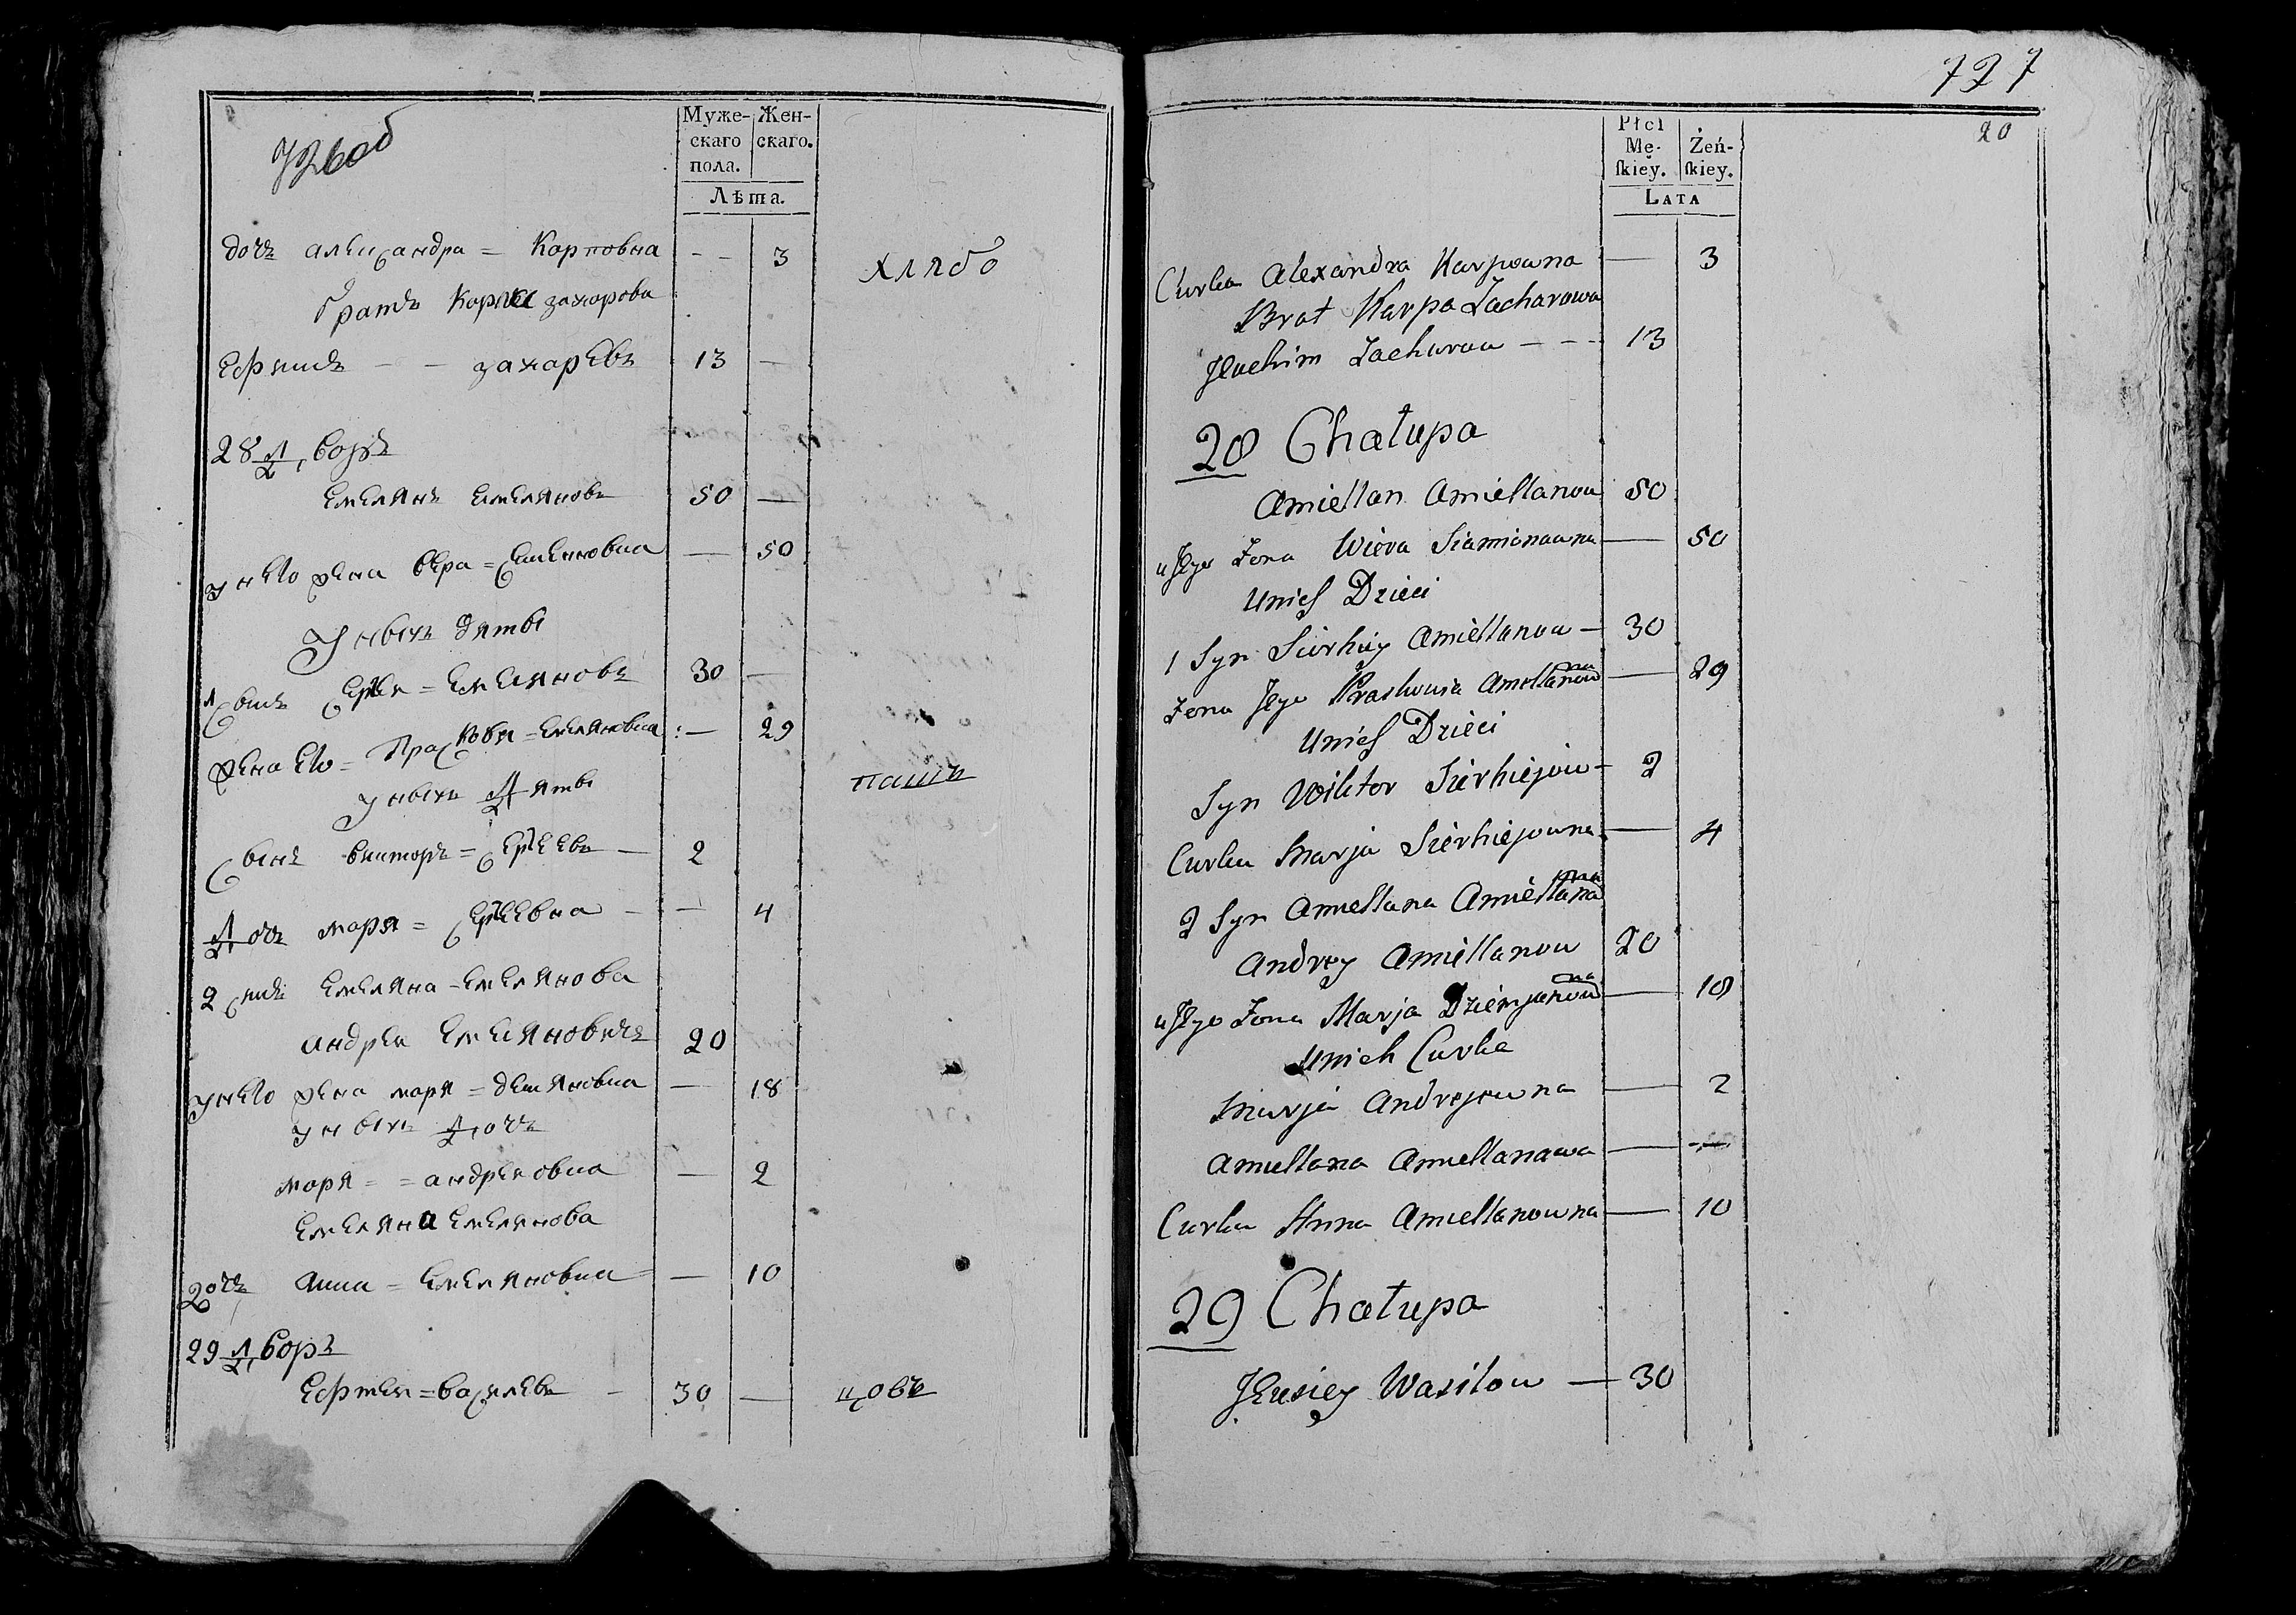 726 об
Муже- Жен-
скаго скаго.
пола.
Лѣта.
дочъ александра = Карповна - - 3
братъ Карпа захарова
Ефимъ - - захаревъ 13 —
хлябо
28 дворъ
Емелянъ Емеляновъ 50 —
у него жена вера = Семеновна — 50
У ныхъ дяты
1 сынъ Сергеи = Емеляновъ 30 —
жена его = Прасковя = Емеляновна — 29
у ныхъ дяты
пашъ
сынъ викторъ = Сергеевъ — 2
дочъ маря = Сергеевна — 4
2 сынъ Емеляна = Емелянова
андреи Емеляновичъ 20
у него жена маря = демяновна — 18
у ныхъ дочъ
маря = = андреювна — 2
Емеляна Емелянова
дочъ анна = Емеляновна — 10
29 дворъ
Ефтеи = васялевъ - 30 —
цовъ
727
20
Płci
Mę- Żeń-
ſkiey. ſkiey.
LATA
Curka Alexandra Karpowna — 3
Brat Karpa Zacharowa
Jeachim Zacharow - - - 13
28 Chałupa
Amiellan Amiellanow 50
u Jego Żona Wiera Siamionawna — 50
Unich Dzieci
1 Syn Sierhiey Amiellanow — 30
Zona Jego Praskowia Amellanowna — 29
Unich Dzieci
Syn Wiktor Sierhiejow — 2
Curka Marja Sierhiejowna — 4
2 Syn Amiellana Amiellana
Andrey Amiellanow 20
u Jego Zona Marja Dziemjanowna — 18
Unich Curka
Marja Andrejewna — 2
Amiellana Amiellanawa — —
Curka Anna Amiellanowna — 10
29 Chałupa
Wasilow — 30